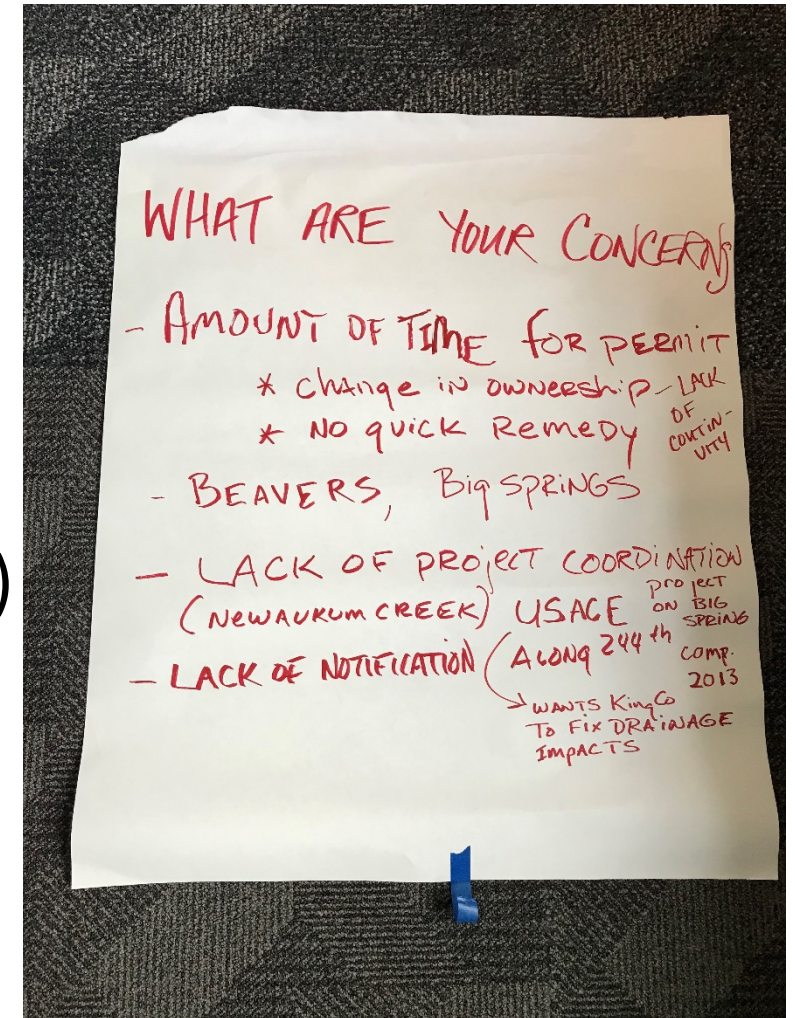 WHAT ARE YOUR CONCERNS
- AMOUNT OF TIME FOR PERMIT
* CHANGE IN OWNERSHIP - LACK OF CONTIN-UITY
* NO QUICK REMEDY
- BEAVERS, Big SPRINGS
- LACK OF PROJECT COORDINATION
(NEWAUKUM CREEK) USACE project ON BIG SPRING
- LACK OF NOTIFICATION (ALONG 244th comp. 2013
WANTS KingCo
TO FIX DRAINAGE
IMPACTS
)